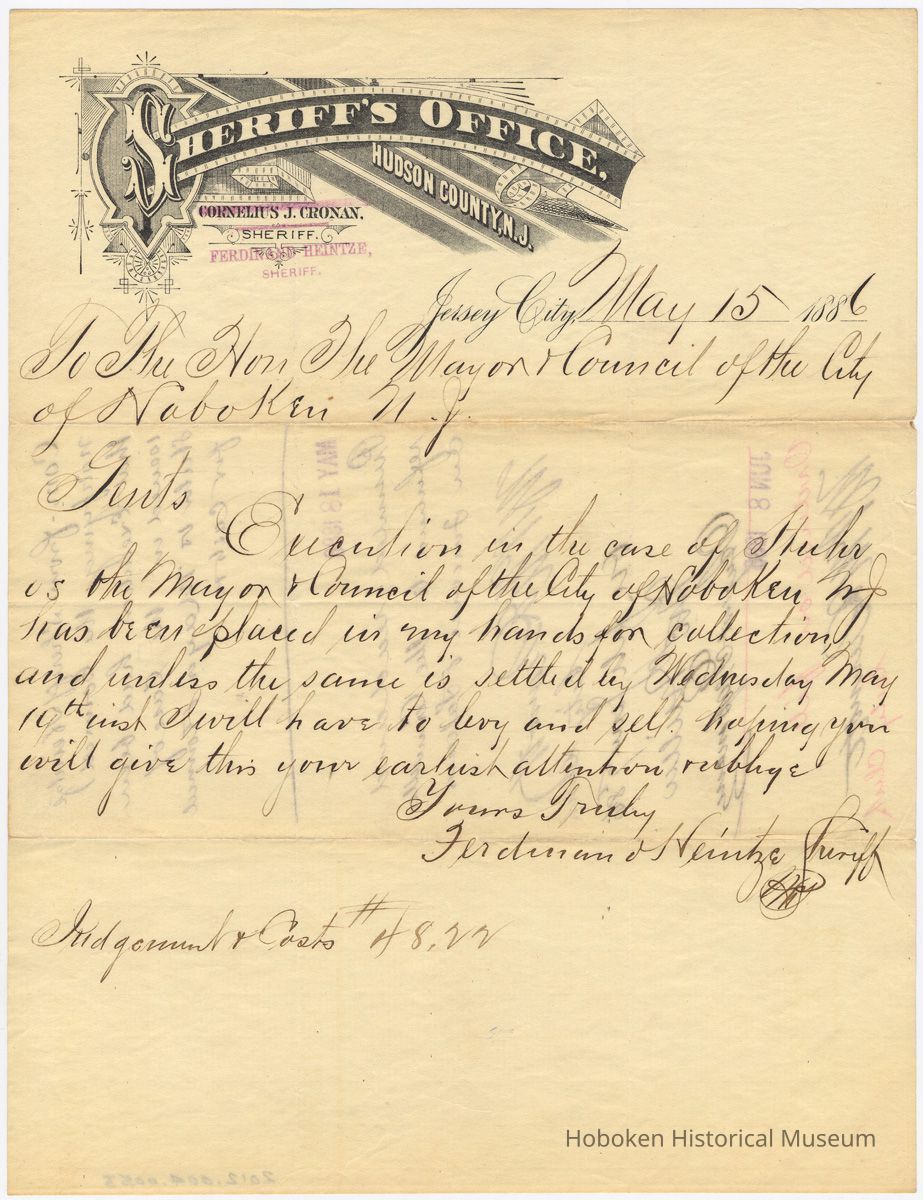 SHERIFF'S OFFICE,
HUDSON COUNTY, N.J.
CORNELIUS J. CRONAN,
SHERIFF.
FERDINAND HEINTZE,
SHERIFF.
Jersey City, May 15 1886
To The Hon The Mayor & Council of the City
of Hoboken N.J.
Gents
Execution in the case of Stuhr
vs the Mayor & Council of the City of Hoboken NJ
has been placed in my hands for collection,
and unless the same is settled by Wednesday May
19th inst I will have to levy and sell. hoping you
will give this your earliest attention & oblige
Yours Truly
Ferdinand Heintze Sheriff
Judgement & Costs # 48,22
Hoboken Historical Museum